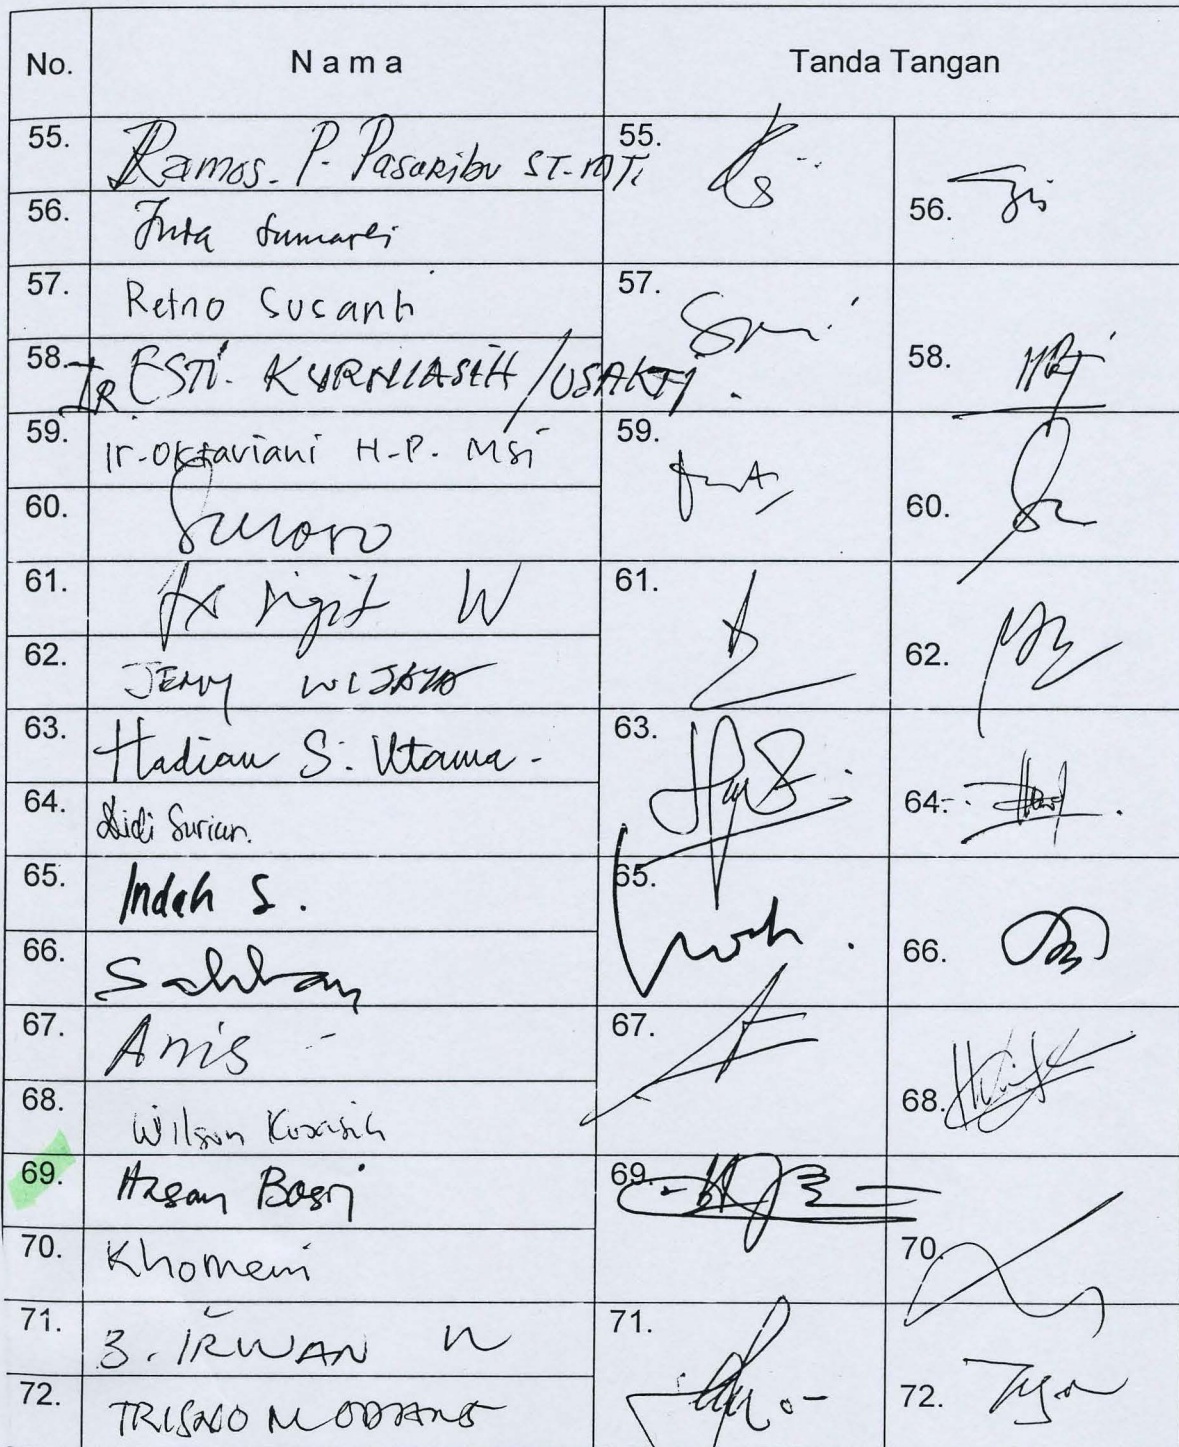 No. N a m a Tanda Tangan
55. Ramos. P. Pasaribu ST-MTi 55.
56. Juta Sumarli 56.
57. Retno Susanti 57.
58. IR ESTI. KURNIASIH /USAKTI. 58.
59. Ir. Oktaviani H.P. MSi 59.
60. Suroro 60.
61. Fx Sigit W 61.
62. JEMY WIJAYA 62.
63. Hadian S. Utama. 63.
64. Didi Surian. 64.
65. Indah S. 65.
66. Sahban 66.
67. Anis 67.
68. Wilson Kosasih 68.
69. Hasan Basri 69.
70. Khomeini 70.
71. B. IRWAN W 71.
72. TRISNO 72.